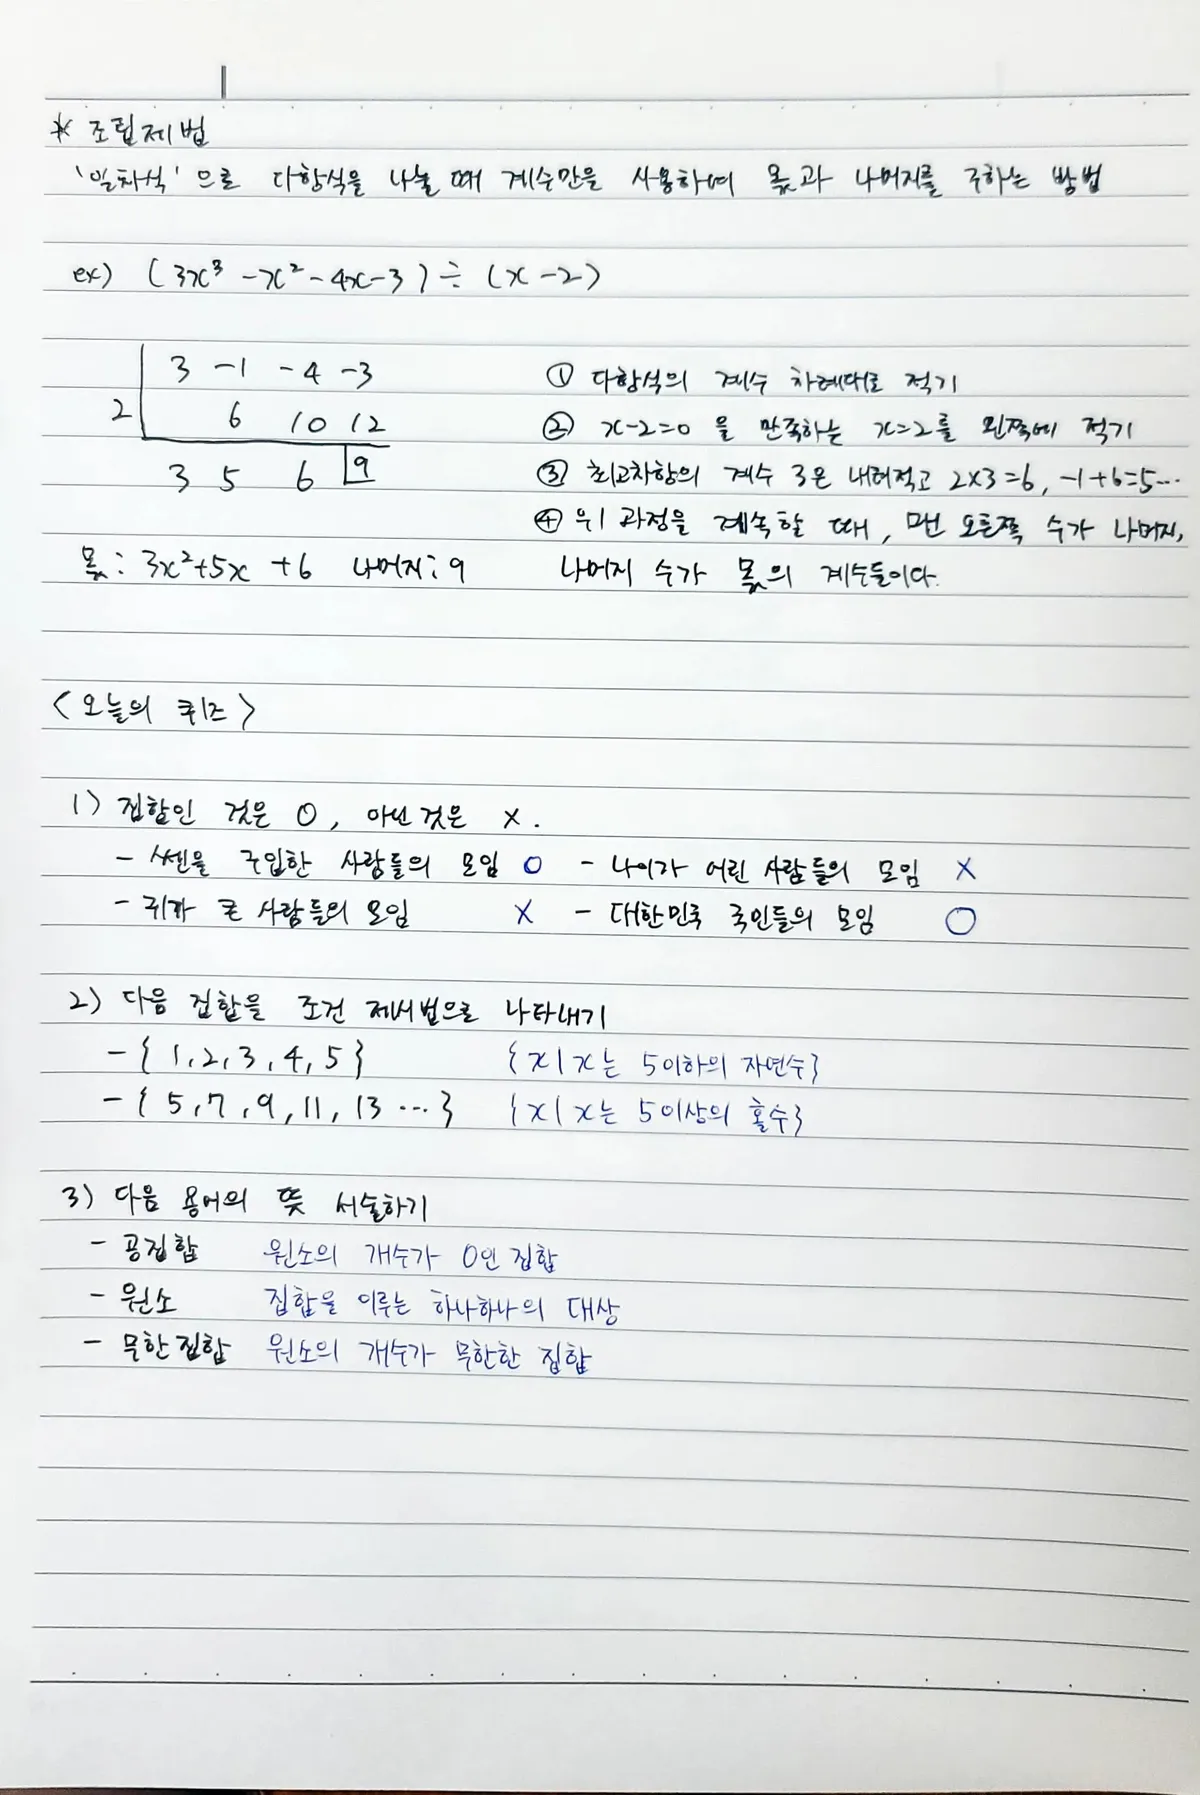 * 조립제법
'일차식'으로 다항식을 나눌 때 계수만을 사용하여 몫과 나머지를 구하는 방법
ex) (3x³ -x² - 4x - 3) ÷ (x - 2)
3 -1 -4 -3
2 6 10 12
3 5 6 9
① 다항식의 계수 차례대로 적기
② x-2=0 을 만족하는 x=2를 왼쪽에 적기
③ 최고차항의 계수 3은 내려적고 2x3=6, -1+6=5...
④ 위 과정을 계속할 때, 맨 오른쪽 수가 나머지,
나머지 수가 몫의 계수들이다.
몫: 3x²+5x +6 나머지: 9
<오늘의 퀴즈>
1) 집합인 것은 O, 아닌 것은 X.
- 쎈을 구입한 사람들의 모임 O - 나이가 어린 사람들의 모임 X
- 귀가 큰 사람들의 모임 X - 대한민국 국민들의 모임 O
2) 다음 집합을 조건 제시법으로 나타내기
- {1, 2, 3, 4, 5} {x | x는 5이하의 자연수}
- {5, 7, 9, 11, 13 ...} {x | x는 5이상의 홀수}
3) 다음 용어의 뜻 서술하기
- 공집합 원소의 개수가 0인 집합
- 원소 집합을 이루는 하나하나의 대상
- 무한집합 원소의 개수가 무한한 집합